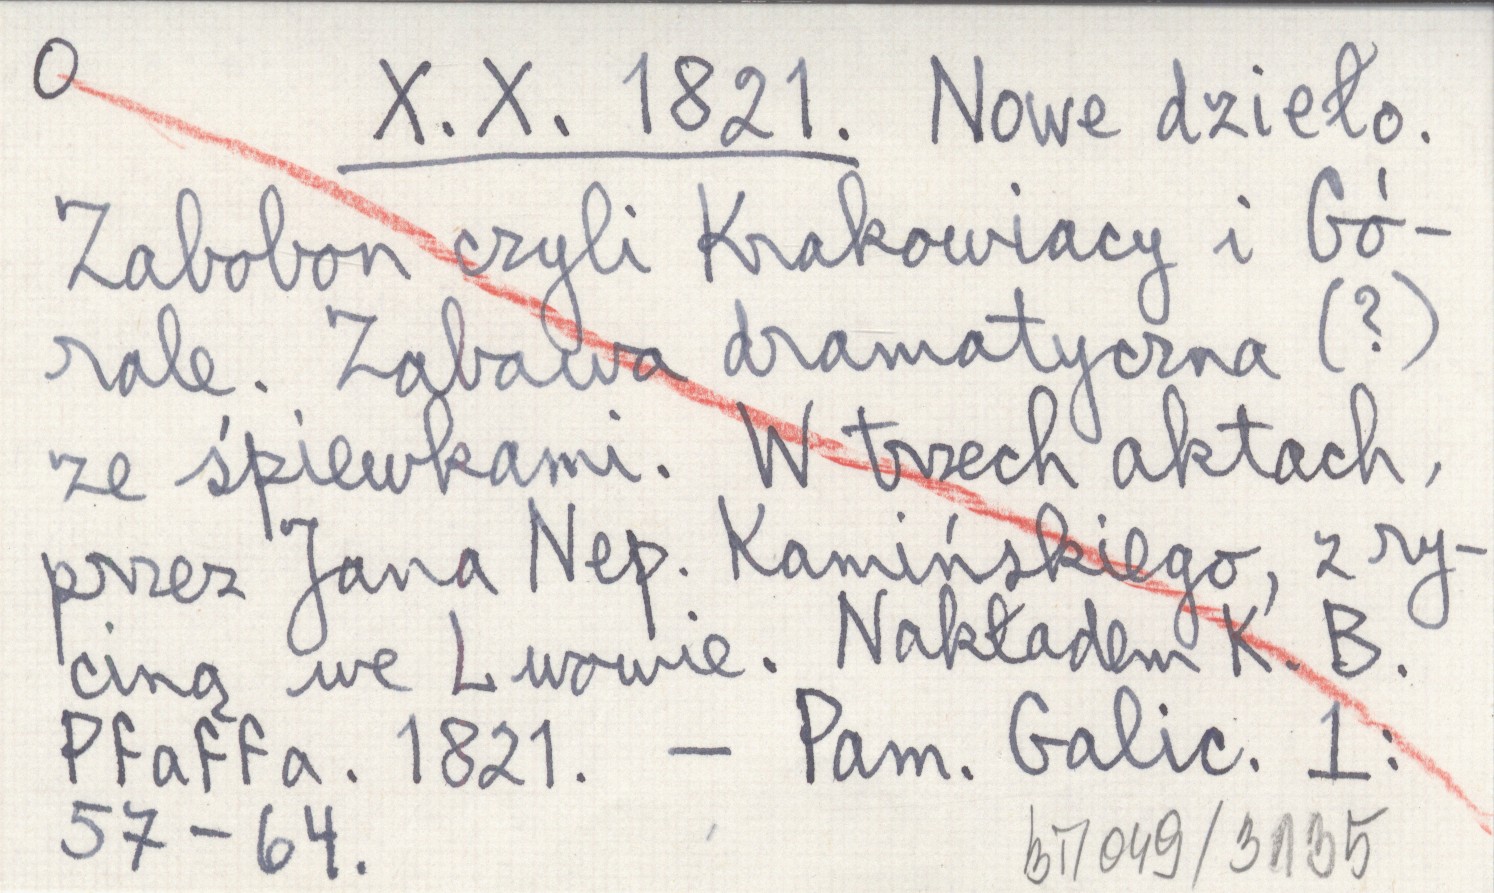 O X.X. 1821. Nowe dzieło.
Zabobon czyli Krakowiacy i Gó-
rale. Zabawa dramatyczna (?)
ze śpiewkami. W trzech aktach,
przez Jana Nep. Kamińskiego, z ry-
ciną we Lwowie. Nakładem K. B.
Pfaffa. 1821. — Pam. Galic. 1:
57-64.
049/3135